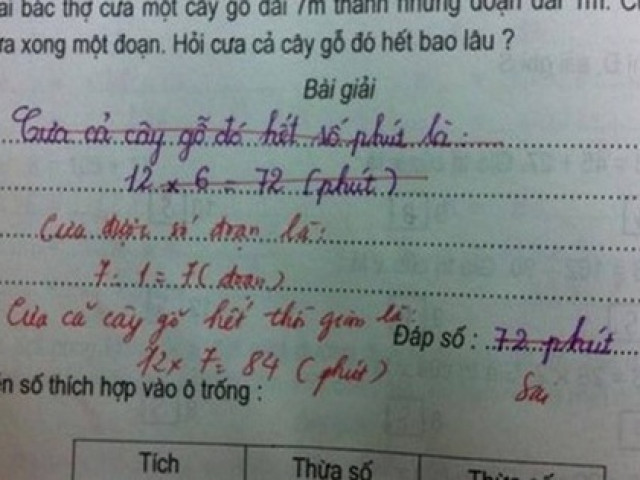 ai bác thợ cưa một cây gỗ dài 7m thành những đoạn dài 1m.
ra xong một đoạn. Hỏi cưa cả cây gỗ đó hết bao lâu ?
Bài giải
Cưa cả cây gỗ đó hết số phút là :
12 x 6 = 72 (phút)
Cưa được số đoạn là:
7 : 1 = 7 (đoạn)
Cưa cả cây gỗ hết thời gian là:
Đáp số : 72 phút
12 x 7 = 84 (phút)
Sai
ền số thích hợp vào ô trống :
Tích Thừa số Thừa số